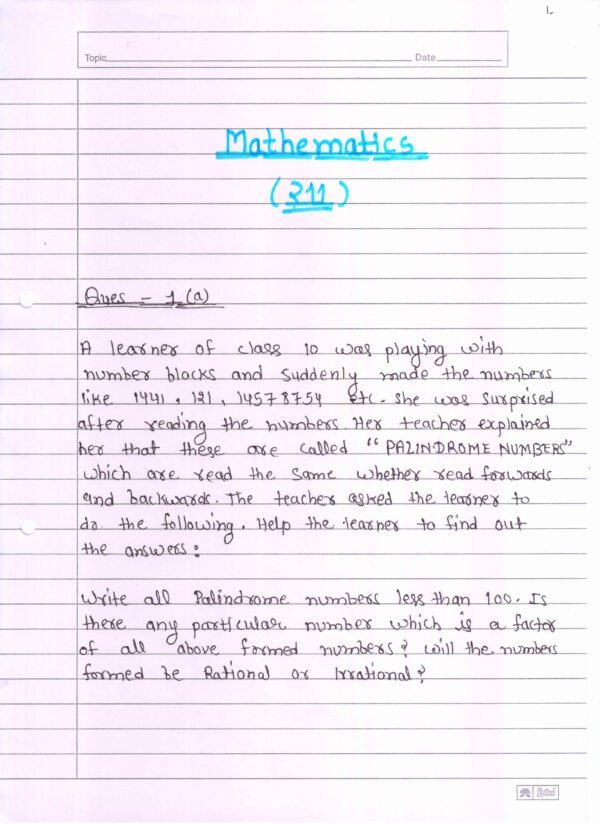 1.
Topic Date
Mathematics
(311)
Ques - 1 (a)
A learner of class 10 was playing with
number blocks and suddenly made the numbers
like 1441, 121, 14578754 etc. she was surprised
after reading the numbers. Her teacher explained
her that these are called "PALINDROME NUMBERS"
which are read the same whether read forwards
and backwards. The teacher asked the learner to
do the following. Help the learner to find out
the answers:
Write all Palindrome numbers less than 100. Is
there any particular number which is a factor
of all above formed numbers? Will the numbers
formed be Rational or Irrational?